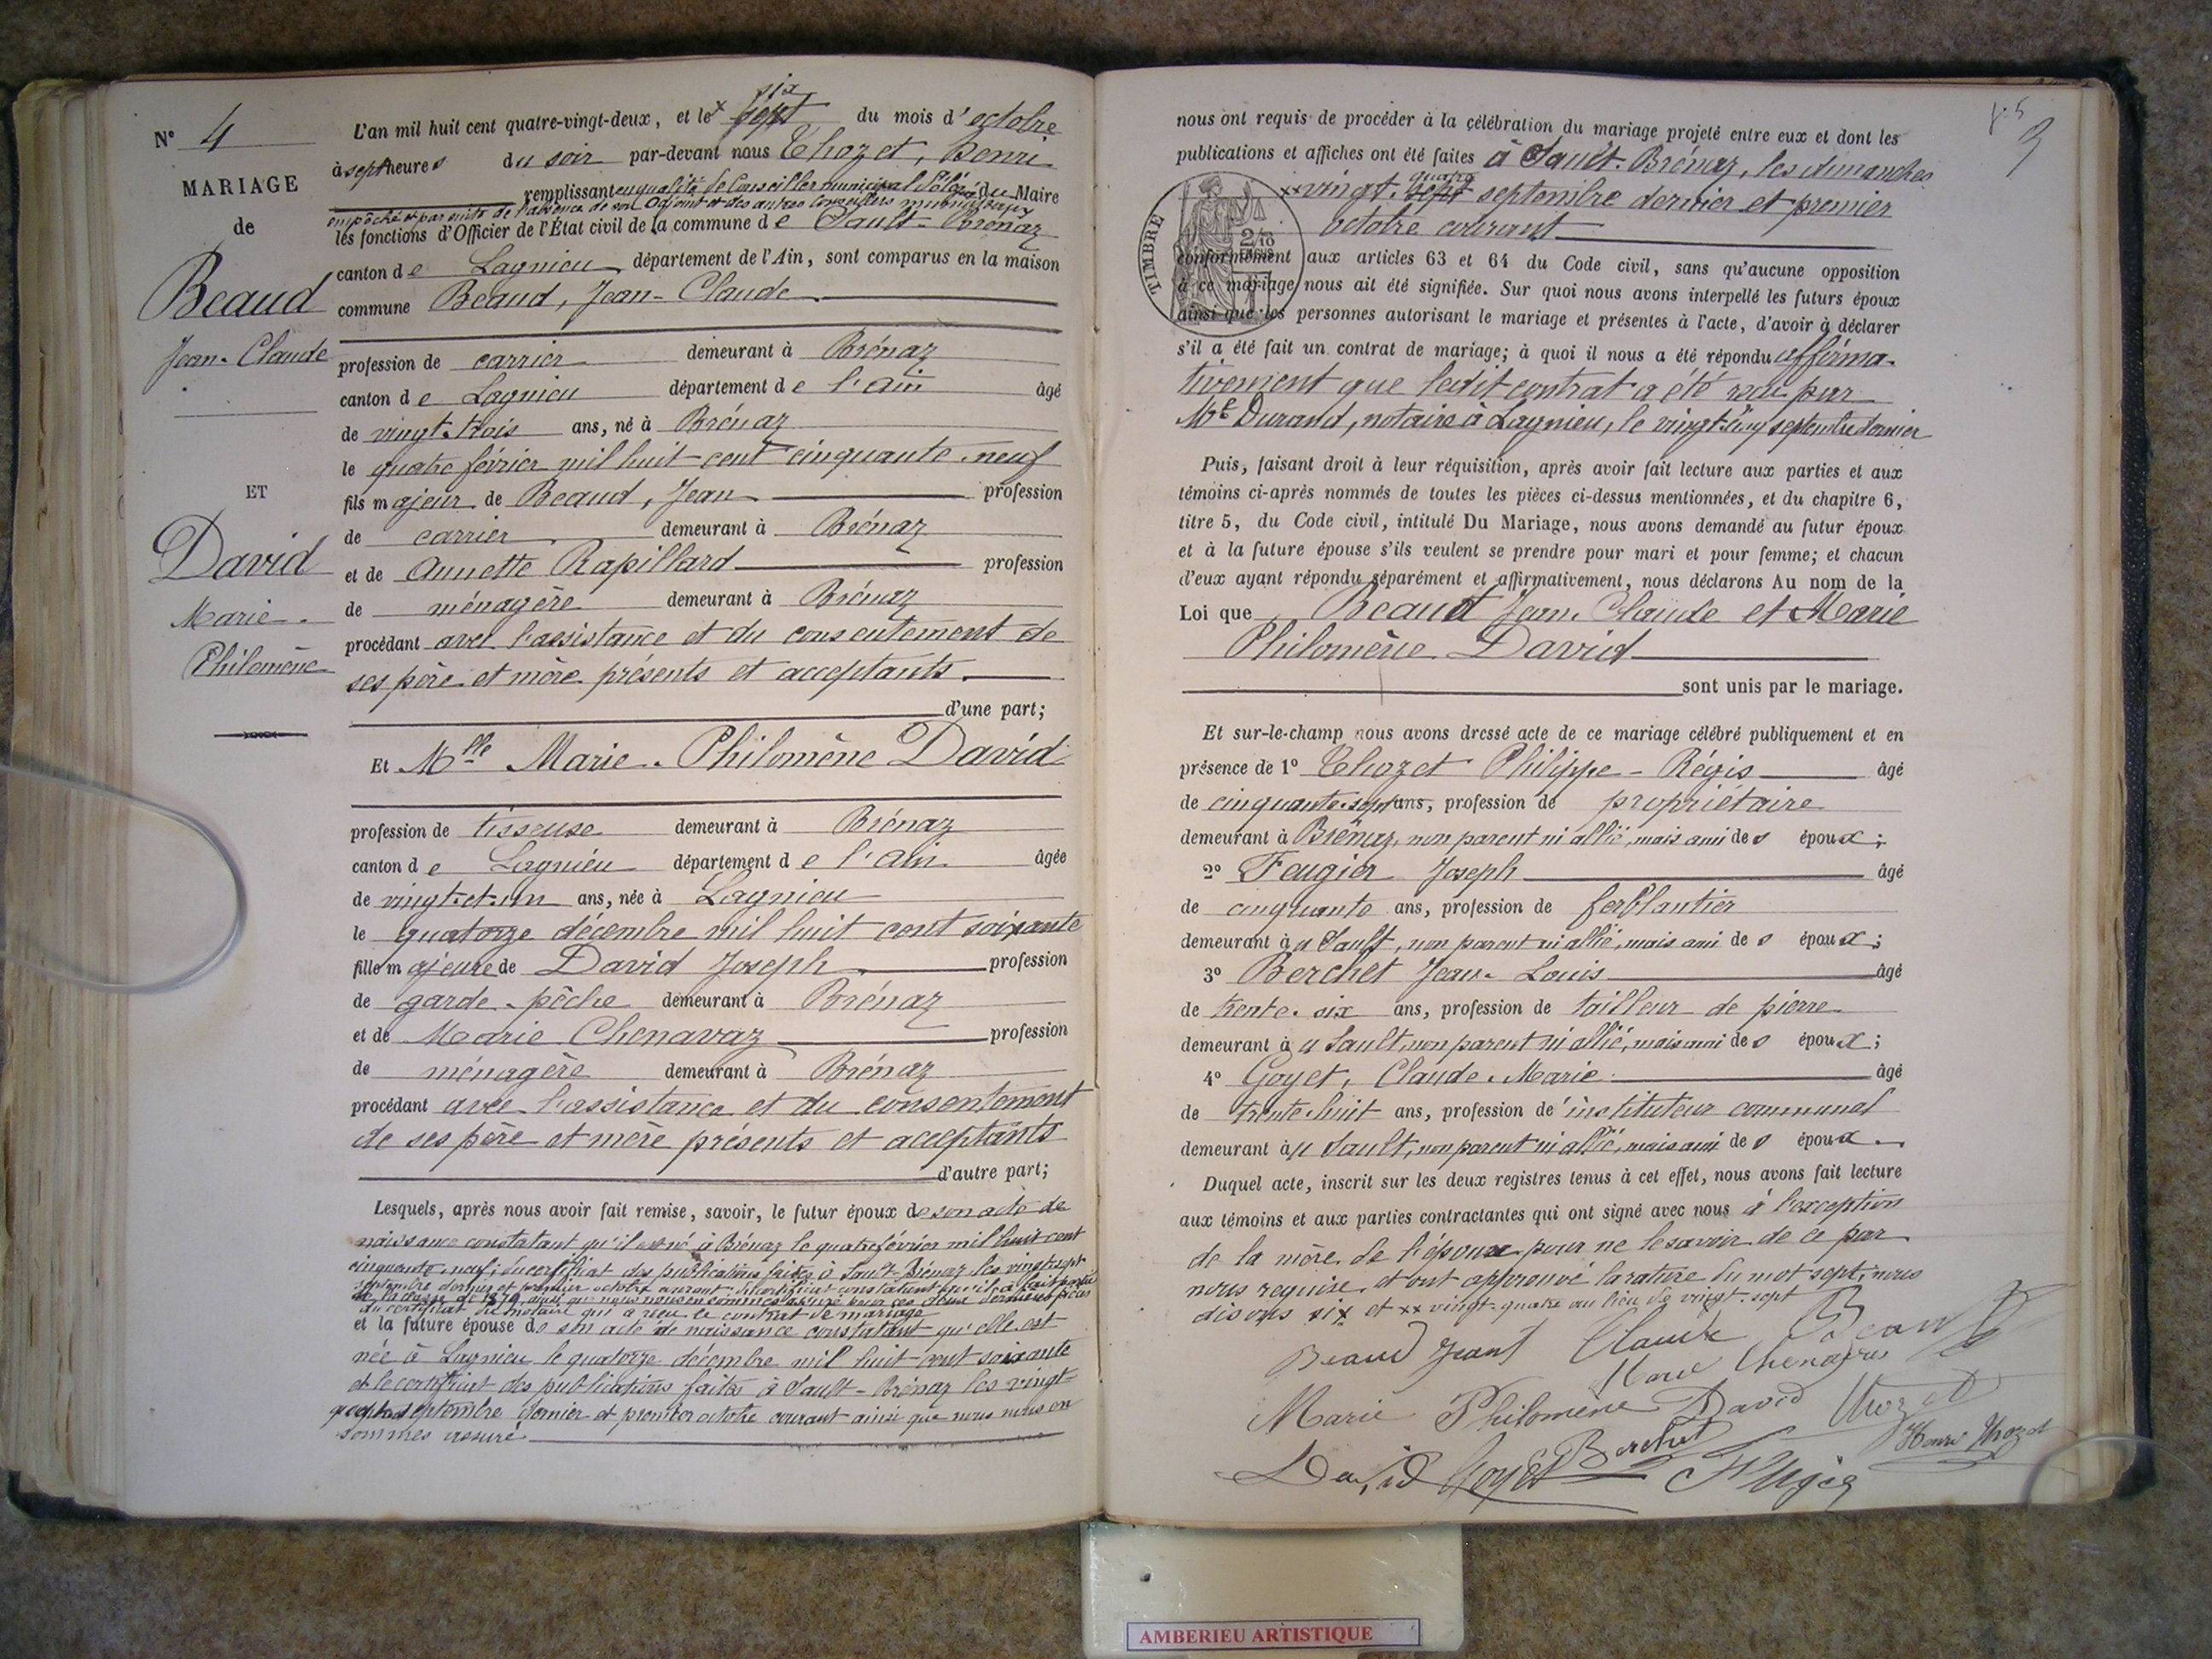 N° 4
MARIAGE
de
Beaud
Jean-Claude
ET
David
Marie-
Philomène
six
L'an mil huit cent quatre-vingt-deux, et le x sept du mois d'octobre
à sept heures du soir par-devant nous Thozet, Henri
remplissant en qualité de Conseiller municipal Délégué du Maire
empêché et par suite de l'absence de son Adjoint et des autres Conseillers municipaux
les fonctions d'Officier de l'État civil de la commune de Sault-Brénaz
canton de Lagnieu département de l'Ain, sont comparus en la maison
commune Beaud, Jean-Claude
profession de carrier demeurant à Brénaz
canton de Lagnieu département de l'Ain âgé
de vingt-trois ans, né à Brénaz
le quatre février mil huit-cent cinquante-neuf
fils majeur de Beaud, Jean profession
de carrier demeurant à Brénaz
et de Annette Rapillard profession
de ménagère demeurant à Brénaz
procédant avec l'assistance et du consentement de
ses père et mère présents et acceptants
d'une part;
Et Mlle Marie-Philomène David
profession de tisseuse demeurant à Brénaz
canton de Lagnieu département de l'Ain âgée
de vingt-et-un ans, née à Lagnieu
le quatorze décembre mil huit cent soixante
fille majeure de David Joseph profession
de garde-pêche demeurant à Brénaz
et de Marie Chenavaz profession
de ménagère demeurant à Brénaz
procédant avec l'assistance et du consentement
de ses père et mère présents et acceptants
d'autre part;
Lesquels, après nous avoir fait remise, savoir, le futur époux de son acte de
naissance constatant qu'il est né à Brénaz le quatre février mil huit cent
cinquante-neuf; du certificat des publications faites à Sault-Brénaz les vingt-sept
septembre dernier et premier octobre courant; du certificat constatant qu'il a fait partie
de la classe de 1879, ainsi que nous nous en sommes assuré pour ces deux dernières pièces
du certificat du notaire qui a reçu le contrat de mariage
et la future épouse de son acte de naissance constatant qu'elle est
née à Lagnieu le quatorze décembre mil huit-cent soixante
et le certificat des publications faites à Sault-Brénaz les vingt-
quatre septembre dernier et premier octobre courant ainsi que nous nous en
sommes assuré
9
nous ont requis de procéder à la célébration du mariage projeté entre eux et dont les
publications et affiches ont été faites à Sault-Brénaz, les dimanches
quatre
xx vingt-sept septembre dernier et premier
octobre courant
TIMBRE
2/10
conformément aux articles 63 et 64 du Code civil, sans qu'aucune opposition
à ce mariage nous ait été signifiée. Sur quoi nous avons interpellé les futurs époux
ainsi que les personnes autorisant le mariage et présentes à l'acte, d'avoir à déclarer
s'il a été fait un contrat de mariage; à quoi il nous a été répondu affirma-
tivement que ledit contrat a été reçu par
Me Durand, notaire à Lagnieu, le vingt-cinq septembre dernier
Puis, faisant droit à leur réquisition, après avoir fait lecture aux parties et aux
témoins ci-après nommés de toutes les pièces ci-dessus mentionnées, et du chapitre 6,
titre 5, du Code civil, intitulé Du Mariage, nous avons demandé au futur époux
et à la future épouse s'ils veulent se prendre pour mari et pour femme; et chacun
d'eux ayant répondu séparément et affirmativement, nous déclarons Au nom de la
Loi que Beaud Jean-Claude et Marie
Philomène David
sont unis par le mariage.
Et sur-le-champ nous avons dressé acte de ce mariage célébré publiquement et en
présence de 1° Thozet Philippe-Régis âgé
de cinquante-sept ans, profession de propriétaire
demeurant à Brénaz, non parent ni allié, mais ami des époux;
2° Feugier Joseph âgé
de cinquante ans, profession de ferblantier
demeurant à u Sault, non parent ni allié, mais ami des époux;
3° Berchet Jean-Louis âgé
de trente-six ans, profession de tailleur de pierre
demeurant à u Sault, non parent ni allié, mais ami des époux;
4° Goyet, Claude-Marie âgé
de trente-huit ans, profession d'instituteur communal
demeurant à u Sault, non parent ni allié, mais ami des époux.
Duquel acte, inscrit sur les deux registres tenus à cet effet, nous avons fait lecture
aux témoins et aux parties contractantes qui ont signé avec nous à l'exception
de la mère de l'époux pour ne le savoir de ce par
nous requise, et ont approuvé la rature du mot sept, nous
disons six et xx vingt-quatre au lieu de vingt-sept
Beaud Jean Claude Beaud
Marie Chenavas
Marie Philomène David Thozet
David Goyet Berchet Feugier Henri Thozet
AMBERIEU ARTISTIQUE